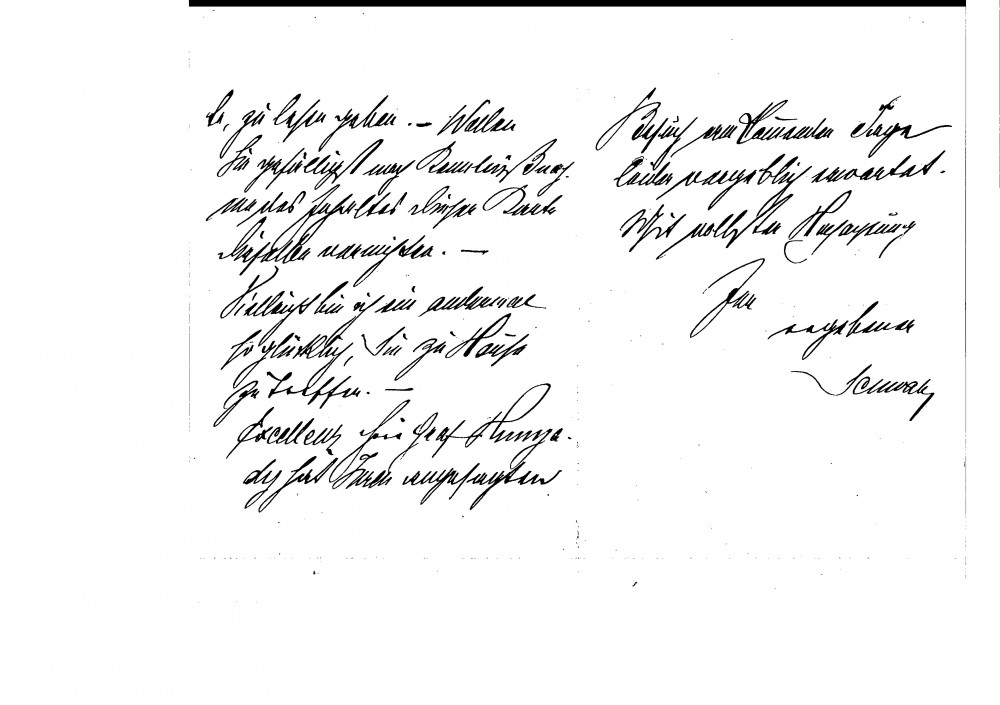 te, zu lesen geben. – Wollen
Sie gefälligst nach Kenntniß Nach-
me des Inhaltes dieser Karte
dieselbe vernichten. –
Vielleicht bin ich ein andermal
so glücklich, Sie zu Hause
zu treffen. –
Excellenz Herr Graf Hunya-
dy hat Ihren angesagten
Besuch am Tage
leider vergeblich erwartet.
Mit vollster Hochachtung
Ihr
ergebener
Schwarz